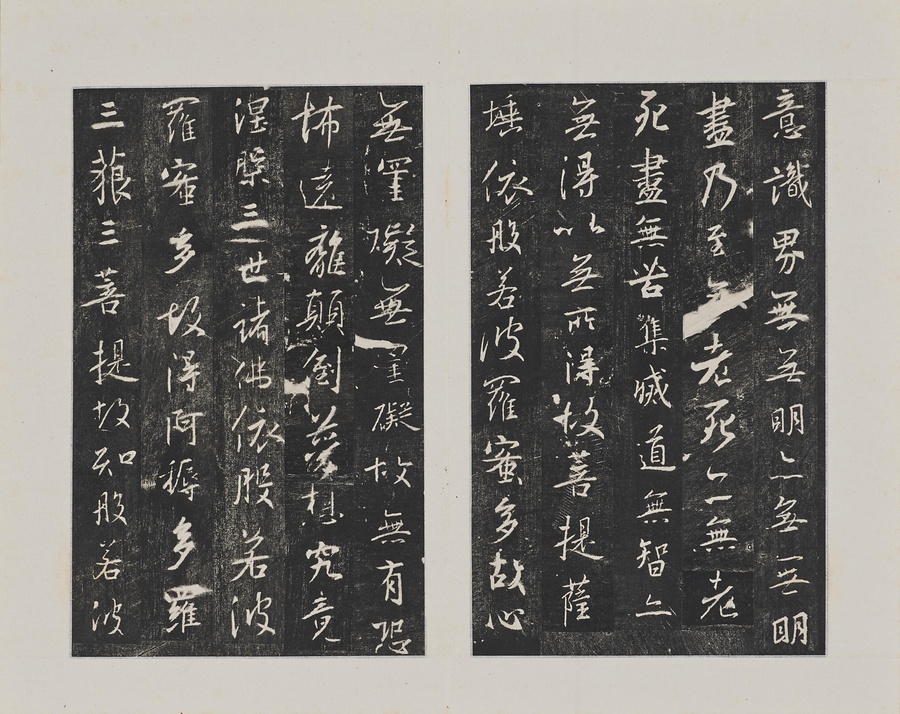 意識界無無明亦無無明
盡乃至無老死亦無老
死盡無苦集滅道無智亦
無得以無所得故菩提薩
埵依般若波羅蜜多故心
無罣礙無罣礙故無有恐
怖遠離顛倒夢想究竟
涅槃三世諸佛依般若波
羅蜜多故得阿耨多羅
三藐三菩提故知般若波